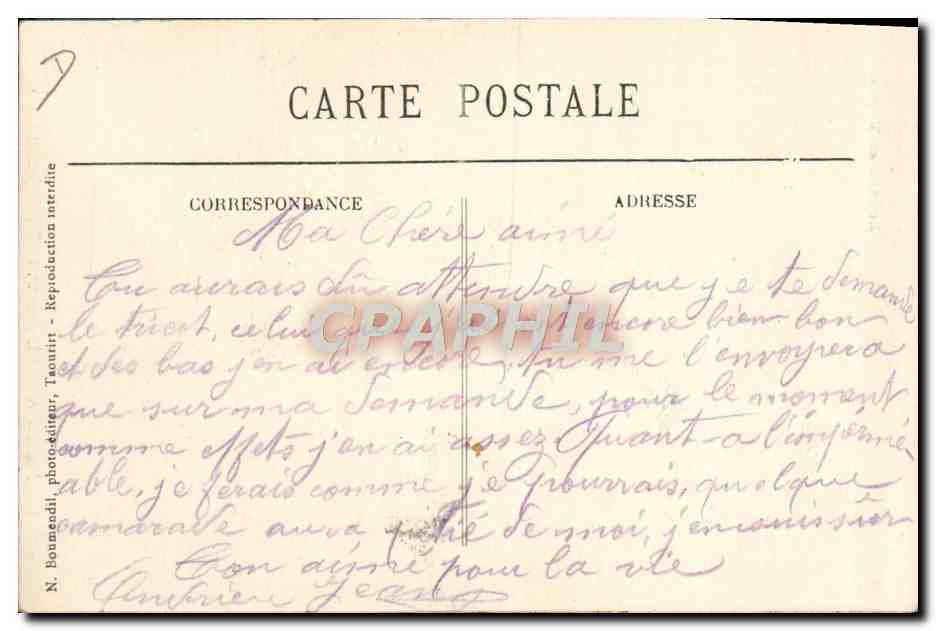 CARTE POSTALE
CORRESPONDANCE
ADRESSE
Ma Chéré aimé
Tu aurais dû attendre que je te demande
le tricot, celui que encore bien bon
et des bas j'en ai encore, tu me l'envoyera
que sur ma demande, pour le moment
comme effets j'en ai assez Quant-a l'impermé-
able, je ferais comme je pourrais, quelque
camarade aura pitié de moi, j'en suis sûr
Ton aimé pour la vie
Jean
N. Boumendil, photo-éditeur, Taourirt - Reproduction interdite
CPAPHIL